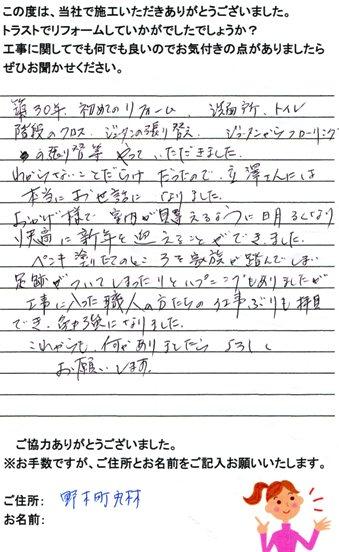 この度は、当社で施工いただきありがとうございました。
トラストでリフォームしていかがでしたでしょうか？
工事に関してでも何でも良いのでお気付きの点がありましたら
ぜひお聞かせください。
築30年、初めてのリフォーム 洗面所、トイレ
階段のクロス、ジュータンの張り替え、ジュータンからフローリング
の張り替等 やっていただきました。
わからないことだらけだったので、立澤さんには
本当にお世話になりました。
おかげ様で室内が見違えるように明るくなり
快適に新年を迎えることができました。
ペンキ塗りたてのところを家族が踏んでしまい
足跡がついてしまったりとハプニングもありましたが
工事に入った職人の方たちの仕事ぶりも拝見
でき、勉強になりました。
これからも、何かありましたら よろしく
お願いします。
ご協力ありがとうございました。
※お手数ですが、ご住所とお名前をご記入お願いいたします。
ご住所： 野木町丸林
お名前：